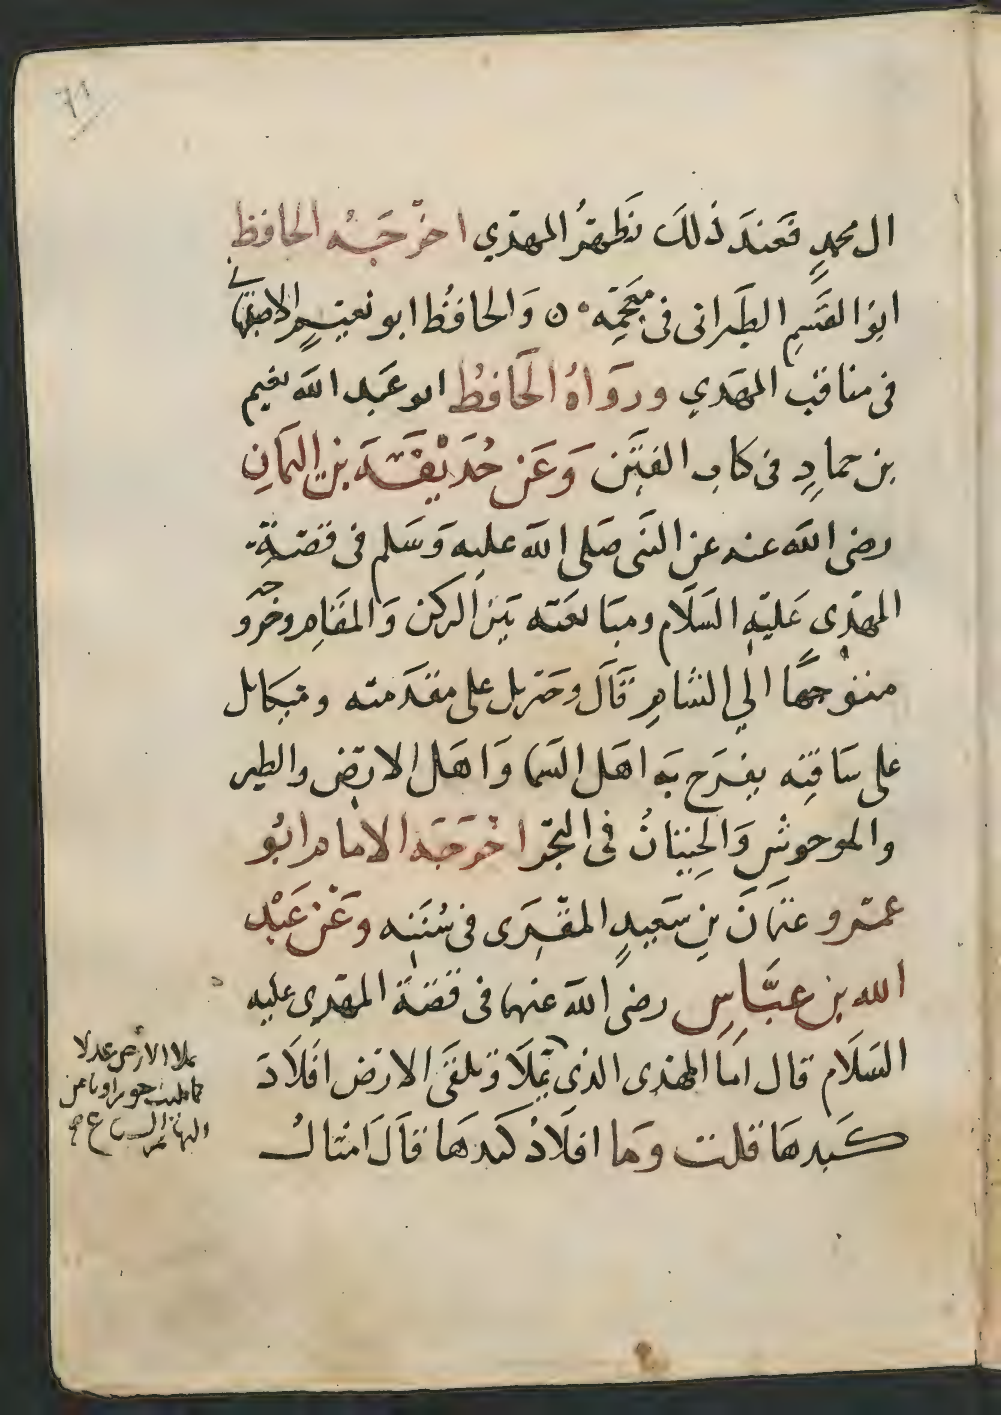 ٦١
ال محمدٍ فعندَ ذٰلكَ يَظهرُ المهدي اخرجَهُ الحافظ
ابو القسمِ الطبراني في معجمِه ٥ وَالحافظُ ابو نعيمٍ الاصبهاني
في مناقب المهدي ورَوَاهُ الحَافظُ ابو عَبد الله نعيم
بن حمادٍ في كتاب الفتَن وَعَن حُذَيْفَةَ بن اليمَانِ
رضى الله عنه عن النبى صَلى الله عليه وَسَلم فى قصّةِ
المهدي عَليْهِ السَّلَام ومبَايعَته بَيْنَ الركن وَالمقَامِ وخروجه
متوجهًا الى الشامِ قَالَ وجبريل على مقدمته وميكايل
على سَاقتِه يفرَح به اهَل السما وَاهَل الارض والطير
والوحوشِ وَالحِيتَانُ فى البَحْر اخْرَجَه الامام ابُو
عمرو عثمَانَ بن سَعيدٍ المقْرى فى سُنَنِه وَعَنْ عَبْد
الله بن عبَّاسٍ رضى الله عنهما فى قصَّة المهَدي عليه
السَلَام قال امَا المهدى الذى يَمْلَا وَتلقَى الارْض افلَاذَ
كَبدهَا قلت وَما افلَاذُ كَبدهَا قَالَ امْثالُ
يملا الارض عدلا
كما مليت جورا وتا من
البهايم السباع صح